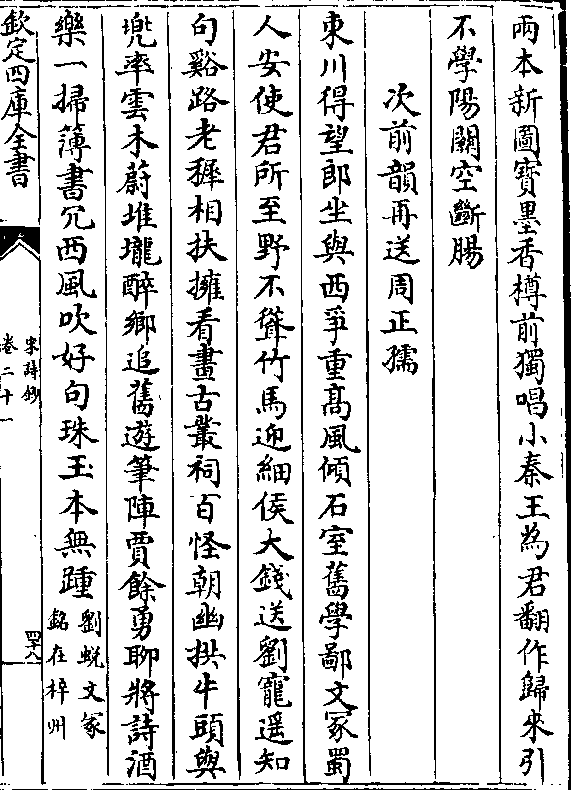 兩本新圖寶墨香樽前獨唱小秦王為君翻作歸來引
不學陽關空斷腸
次前韻再送周正孺
東川得望郎坐與西爭重高風傾石室舊學鄙文冢蜀
人安使君所至野不聳竹馬迎細侯大錢送劉寵遥知
句谿路老穉相扶擁看畫古叢祠百怪朝幽拱牛頭與
兜率雲木蔚堆壠醉鄉追舊遊筆陣賈餘勇聊將詩酒
樂一掃簿書冗西風吹好句珠玉本無踵劉蛻文冢
銘在梓州
欽定四庫全書
宋詩鈔
卷二十一
四十八